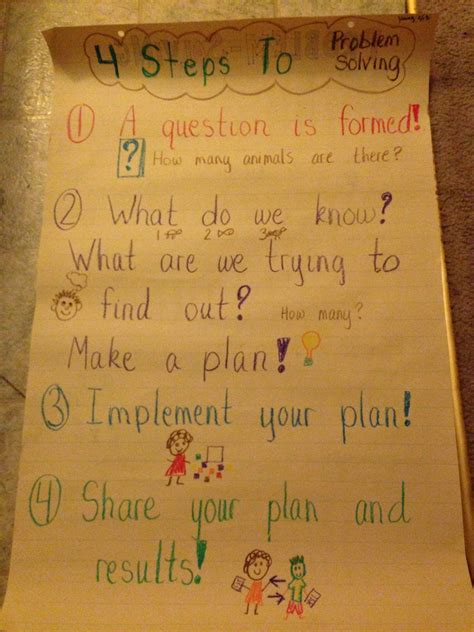 4 Steps To Problem Solving
① A question is formed!
? How many animals are there?
② What do we know?
1 2 3
What are we trying to
find out? How many?
Make a plan!
③ Implement your plan!
④ Share your plan and
results!